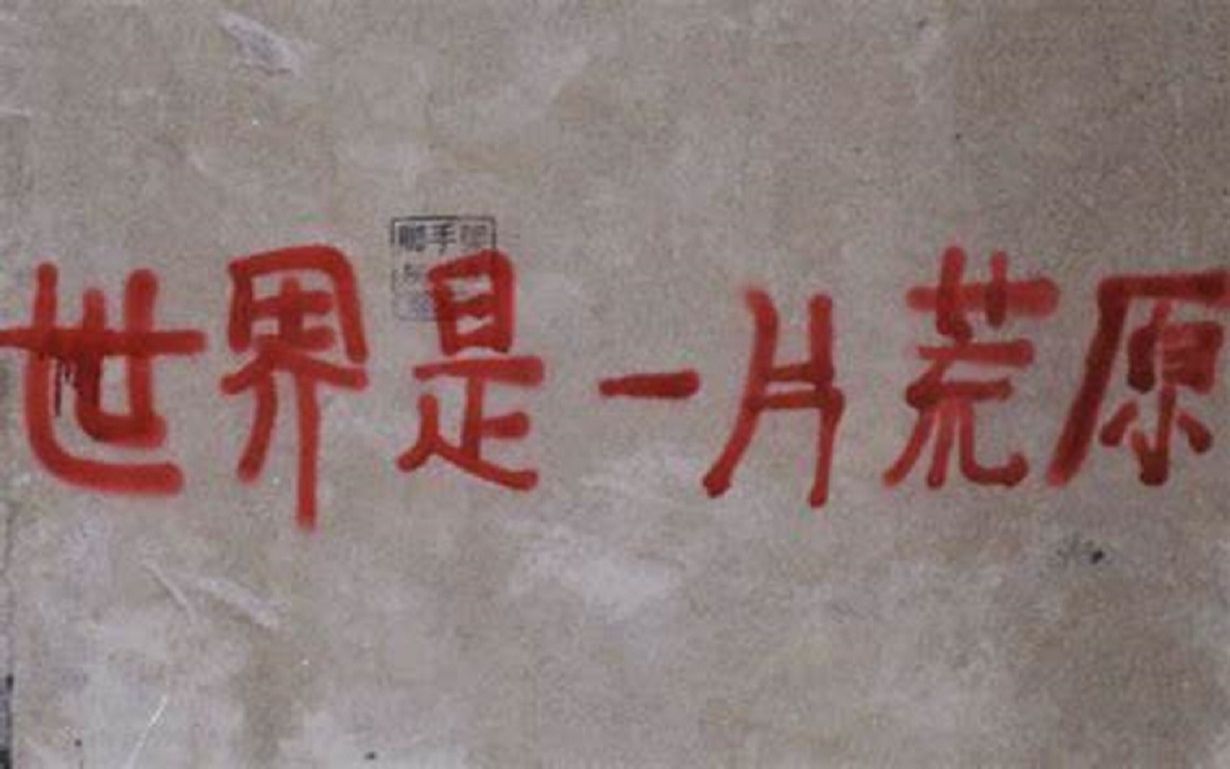 世界是一片荒原